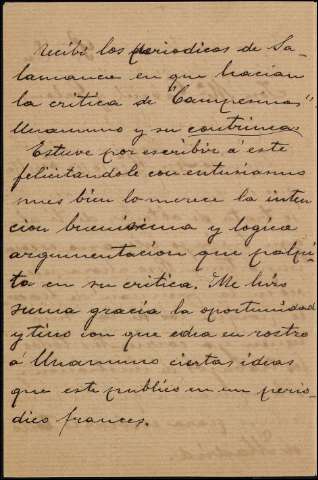 Recibí los periodicos de Sa-
lamanca en que hacían
la critica de "Campesinas"
Unamuno y su contrinca.
Estuve por escribir á este
felicitandole con entusiasmo
pues bien lo merece la inten
cion buenisima y logica
argumentacion que palpi-
ta en su critica. Me hizo
suma gracia la oportunidad
y tino con que echa en rostro
á Unamuno ciertas ideas
que este publicó en un perio-
dico frances.